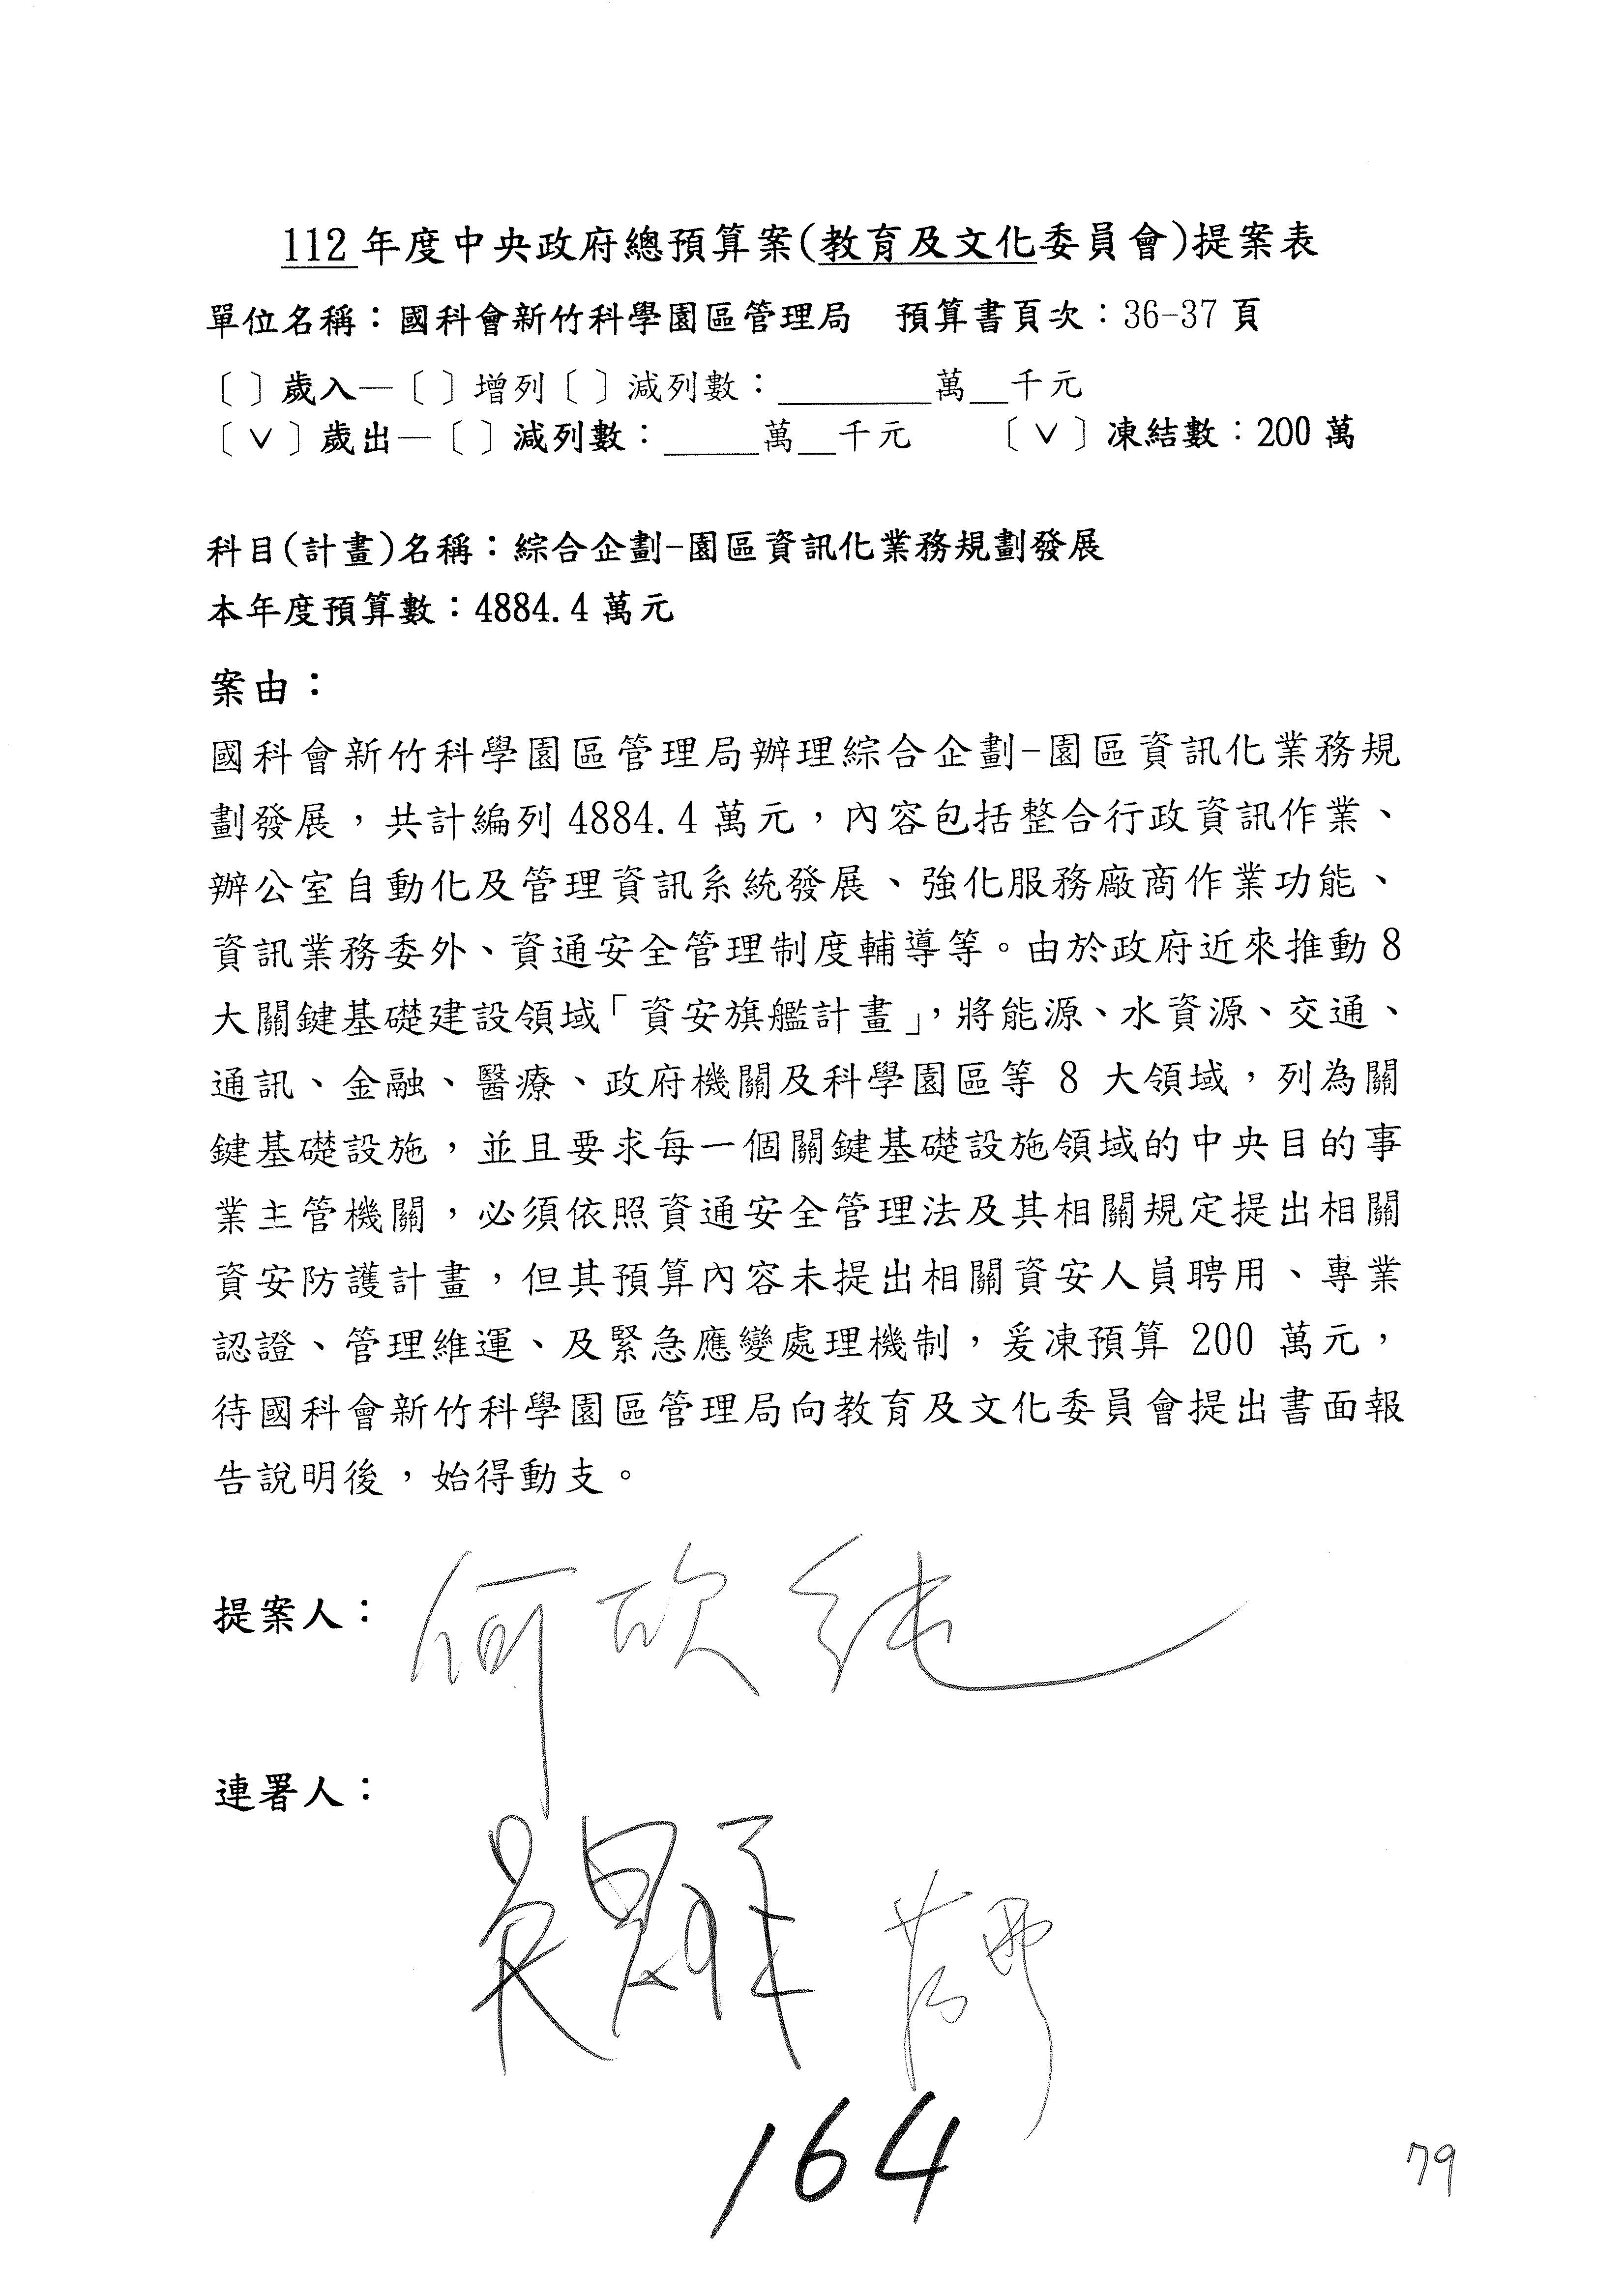 112年度中央政府總預算案(教育及文化委員會)提案表
單位名稱：國科會新竹科學園區管理局　預算書頁次：36-37頁
〔 〕歲入—〔 〕增列〔 〕減列數：________萬__千元
〔∨〕歲出—〔 〕減列數：_____萬__千元　〔∨〕凍結數：200萬
科目(計畫)名稱：綜合企劃-園區資訊化業務規劃發展
本年度預算數：4884.4萬元
案由：
國科會新竹科學園區管理局辦理綜合企劃-園區資訊化業務規
劃發展，共計編列4884.4萬元，內容包括整合行政資訊作業、
辦公室自動化及管理資訊系統發展、強化服務廠商作業功能、
資訊業務委外、資通安全管理制度輔導等。由於政府近來推動8
大關鍵基礎建設領域「資安旗艦計畫」，將能源、水資源、交通、
通訊、金融、醫療、政府機關及科學園區等 8 大領域，列為關
鍵基礎設施，並且要求每一個關鍵基礎設施領域的中央目的事
業主管機關，必須依照資通安全管理法及其相關規定提出相關
資安防護計畫，但其預算內容未提出相關資安人員聘用、專業
認證、管理維運、及緊急應變處理機制，爰凍預算 200 萬元，
待國科會新竹科學園區管理局向教育及文化委員會提出書面報
告說明後，始得動支。
提案人：何欣純
連署人：
164
79